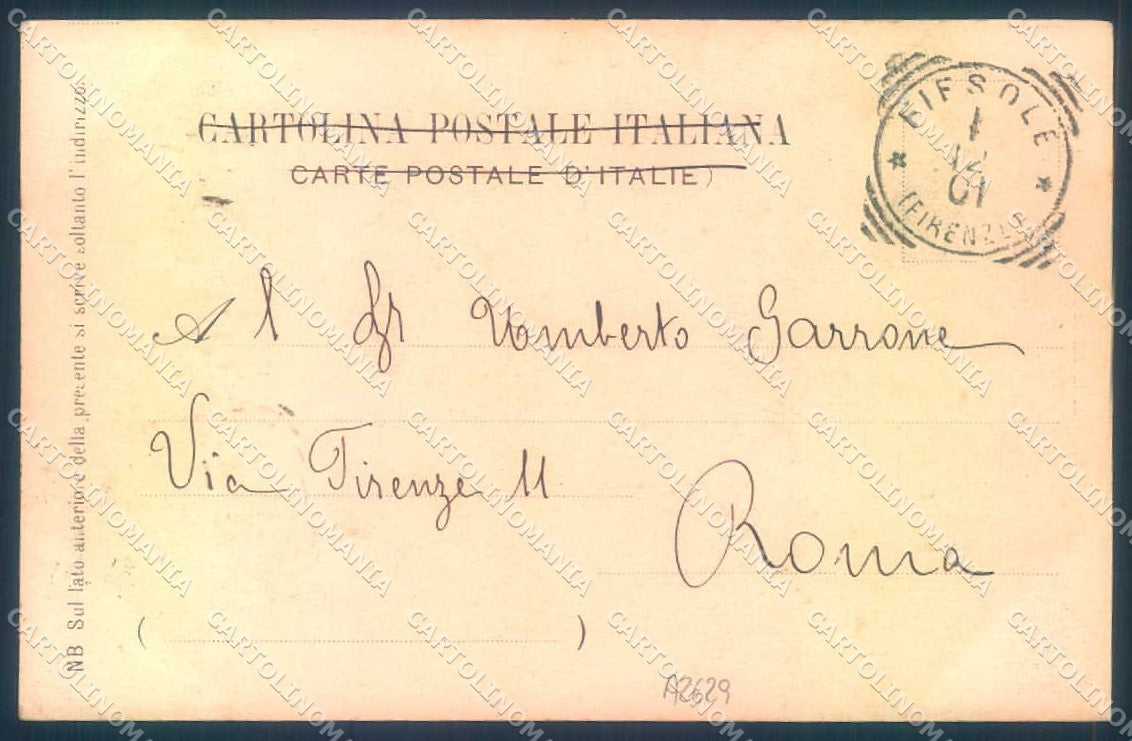 CARTOLINA POSTALE ITALIANA
CARTE POSTALE D'ITALIE)
FIESOLE
1
12
01
(FIRENZE)
Al Sr Umberto Garrone
Via Firenze 11
Roma
( )
NB Sul lato anteriore della precente si scrive soltanto l'indirizzo.
A2629
CARTOLINOMANIA